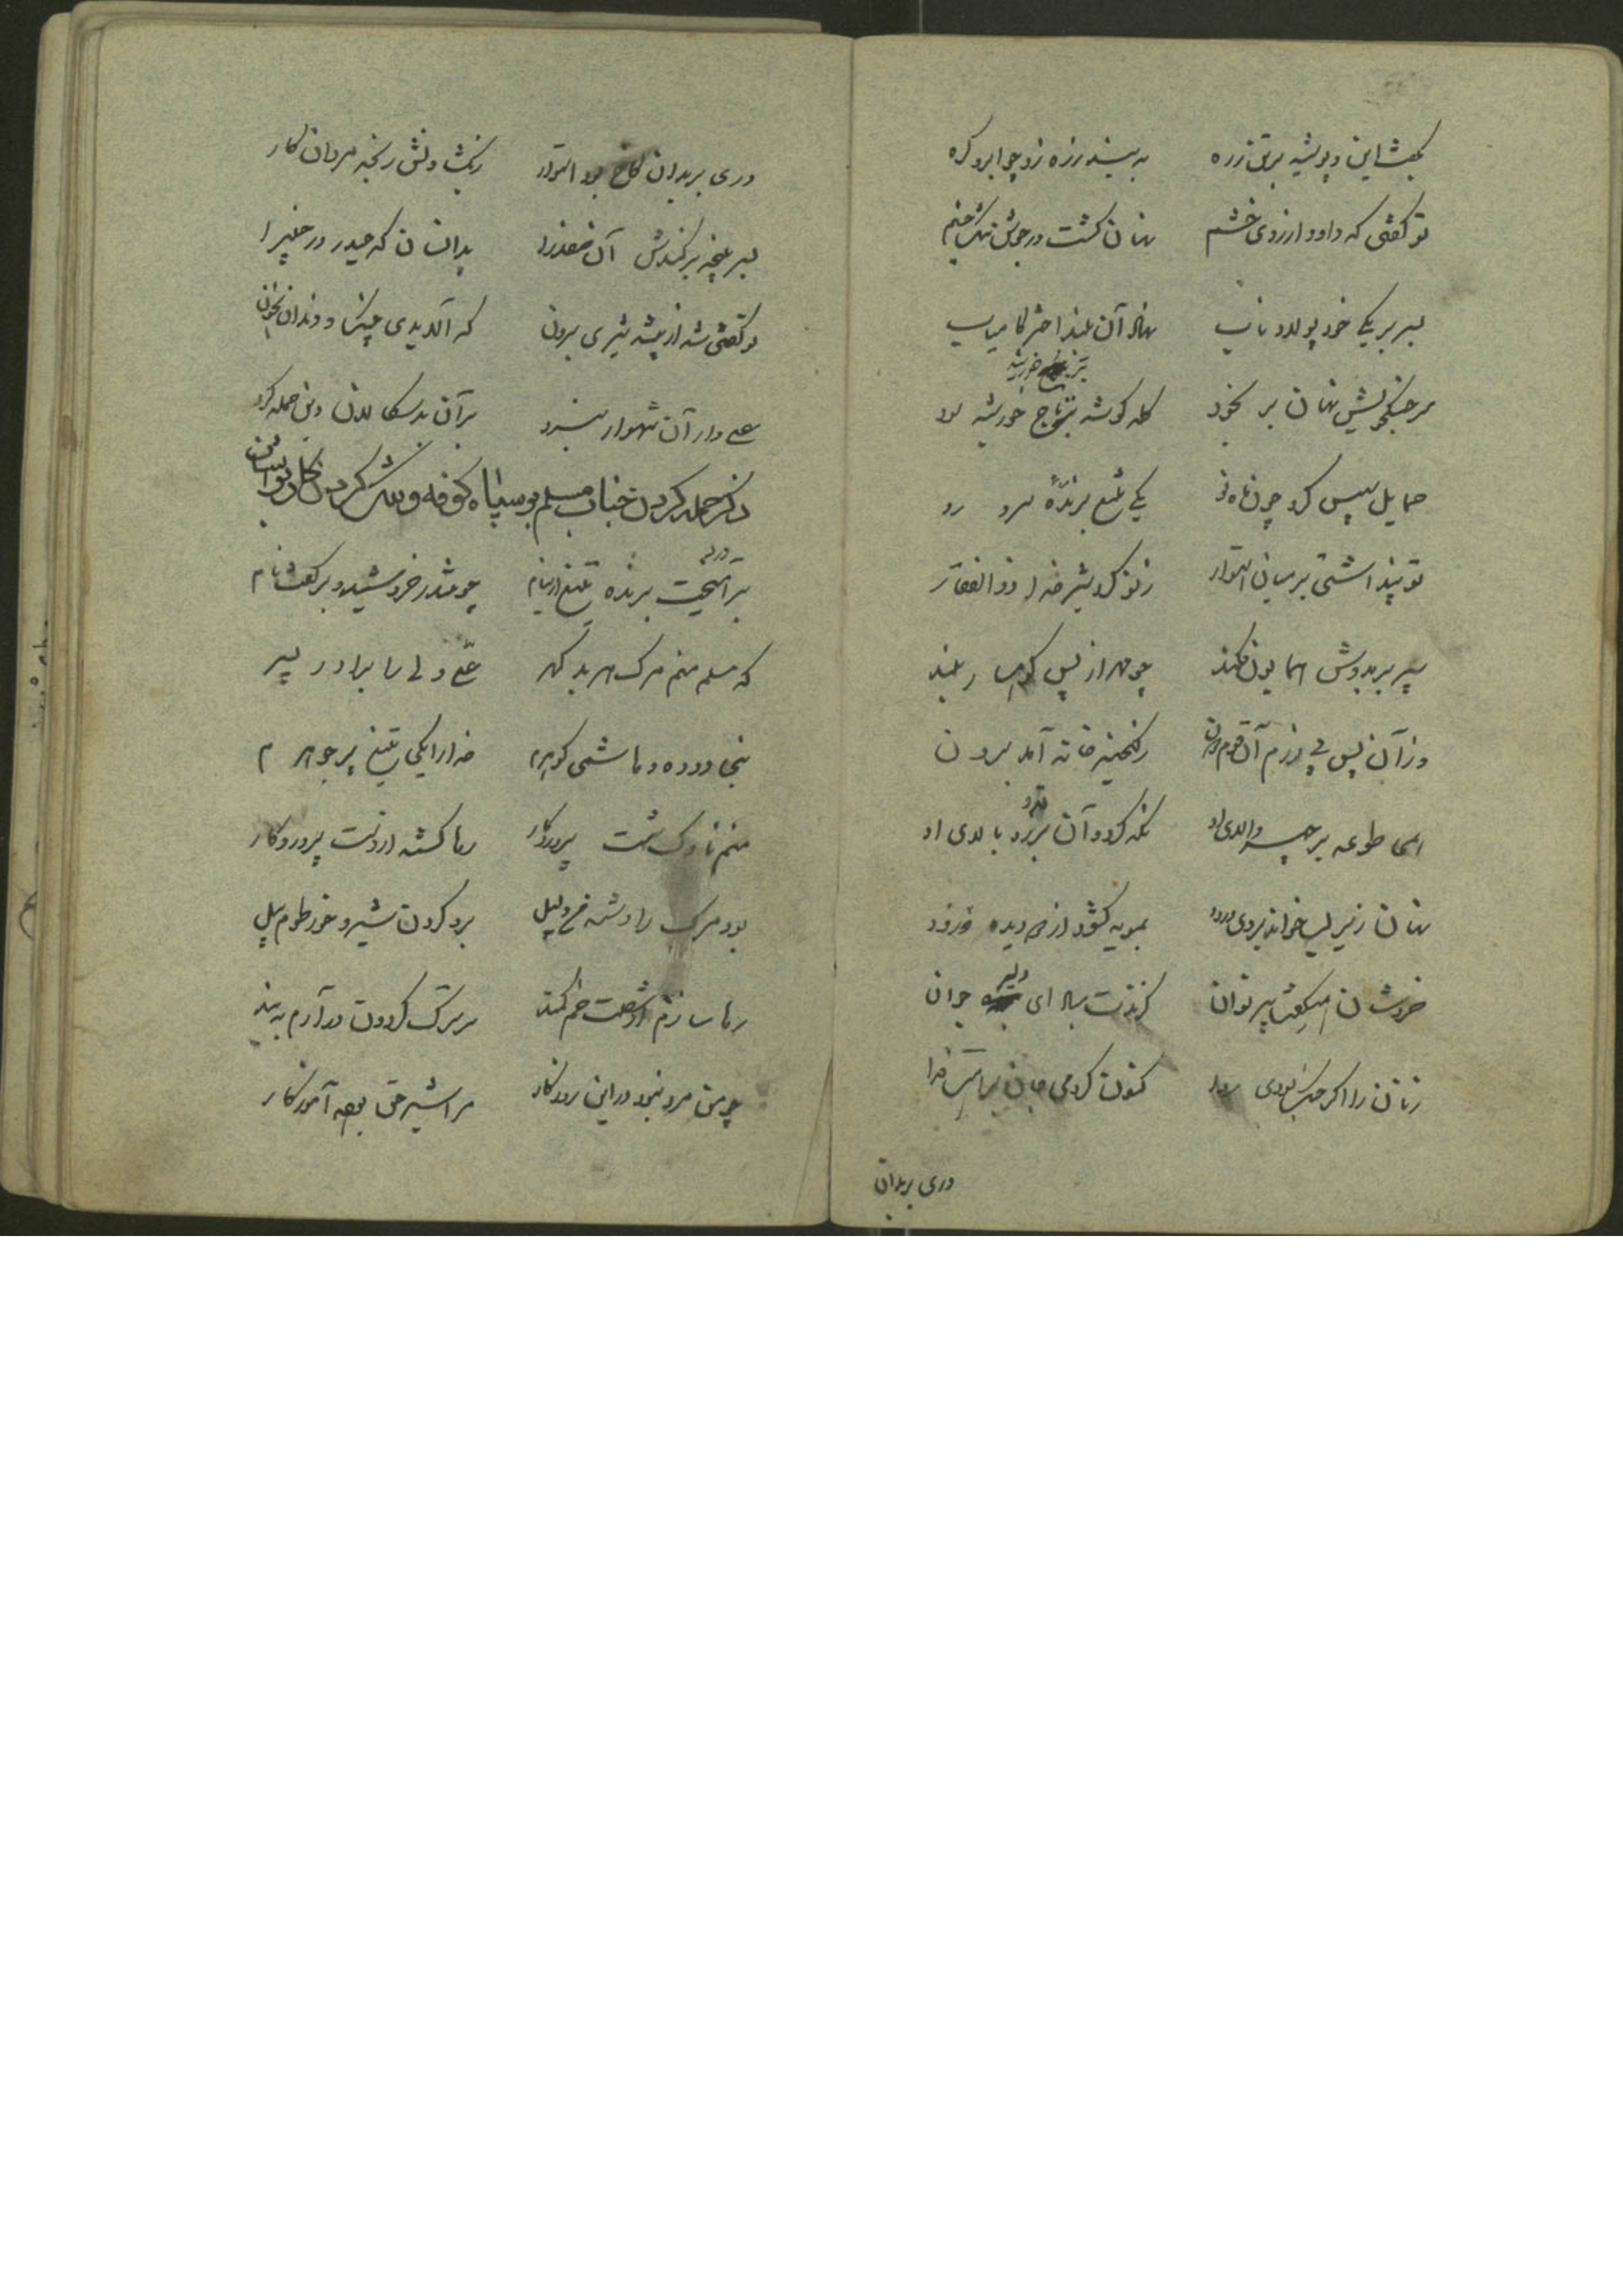 بگفت این و پوشید بر تن زره به بند زره زد چو ابرو گره
تو گفتی که داود از روی خشم نهان گشت در جوشن تنگ چشم
بسر بر یکی خود پولاد ناب نهاد آن بلند اختر کامیاب
سر جنگجویش نهان بر بخود کله گوشه بر تاج خورشید سود
بر تاج خورشید
حمایل سپس کرد چون ماه نو یکی تیغ برنده
تو پنداشتی بر میان استوار ز نو کرد شیر خدا ذوالفقار
سپر بر بدوش همایون فکند چو مهر از پس کوهسار بلند
وز آن پس پی رزم آن قوم دون ز گنجینه خانه آمد برون
همی طوعه بر چهر والای او نگه کرد و آن برز و بالای او
نهان زیر لب خواند بر وی درود بمویه گشود از دو دیده دو رود
خروشان همیگفت پیر نوان کزندت مباد ای دلیر جوان
زنان را اگر جنگ بودی روا کنون کردمی جان برایت فدا
دری بر بدان
دری بر بدان کاخ بود استوار ز بگشادنش رنجه مردان کار
بسر پنجه بر کندش آن صفدرا بدانسان که حیدر در خیبرا
تو گفتی شد از بیشه شیری برون که آلاید چنگ و دندان بخون
علی وار آن شهسوار نبرد بر آن بدسگالان دین حمله کرد
ذکر حمله کردن جناب مسلم بر سپاه کوفه و
بر آهیخت برنده تیغ از نیام چو تندر خروشید و بر گفت نام
که مسلم منم مرگ هر بدگهر علی ولی را برادر پسر
نژاده و هاشمی گوهرم خدا را یکی تیغ پر جوهرم
منم ناوک شست پروردگار رها گشته از دست پروردگار
بود مرگ را دشنه من دلیل برد گردن شیر و خرطوم پیل
رها سازم ار شصت خم کمند سر ترک گردون در آرم به بند
چو من مرد نبود در این روزگار مرا شیر حق بوده آموزگار